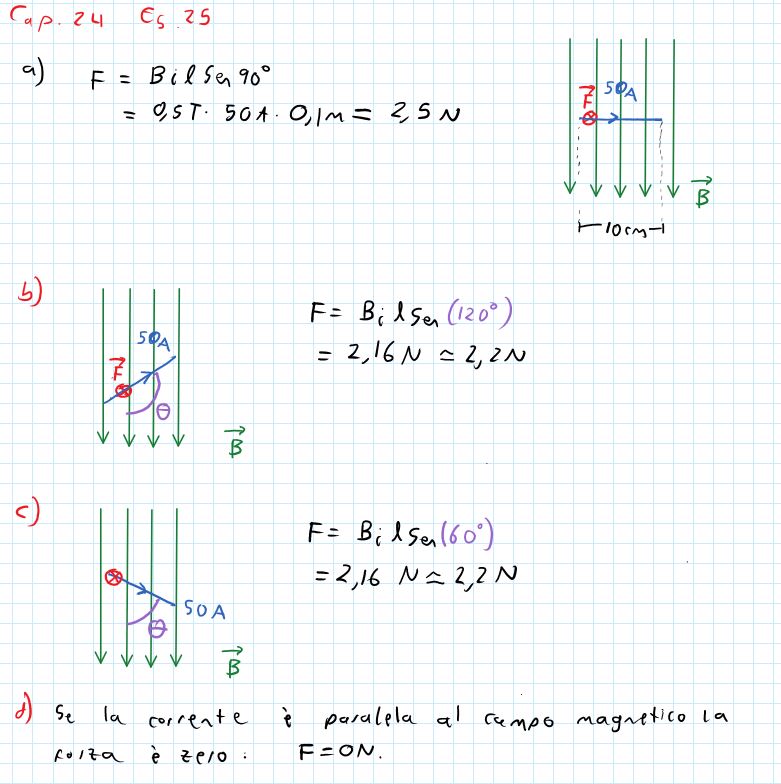 Cap. 24 Es. 25
a) F = B i l Sen 90°
= 0,5T · 50A · 0,1m = 2,5 N
50A
F
B
10cm
b) F = B i l Sen (120°)
= 2,16 N ≃ 2,2N
50A
F
θ
B
c) F = B i l Sen (60°)
= 2,16 N ≃ 2,2N
50A
θ
B
d) Se la corrente è paralela al campo magnetico la
forza è zero. F=0N.